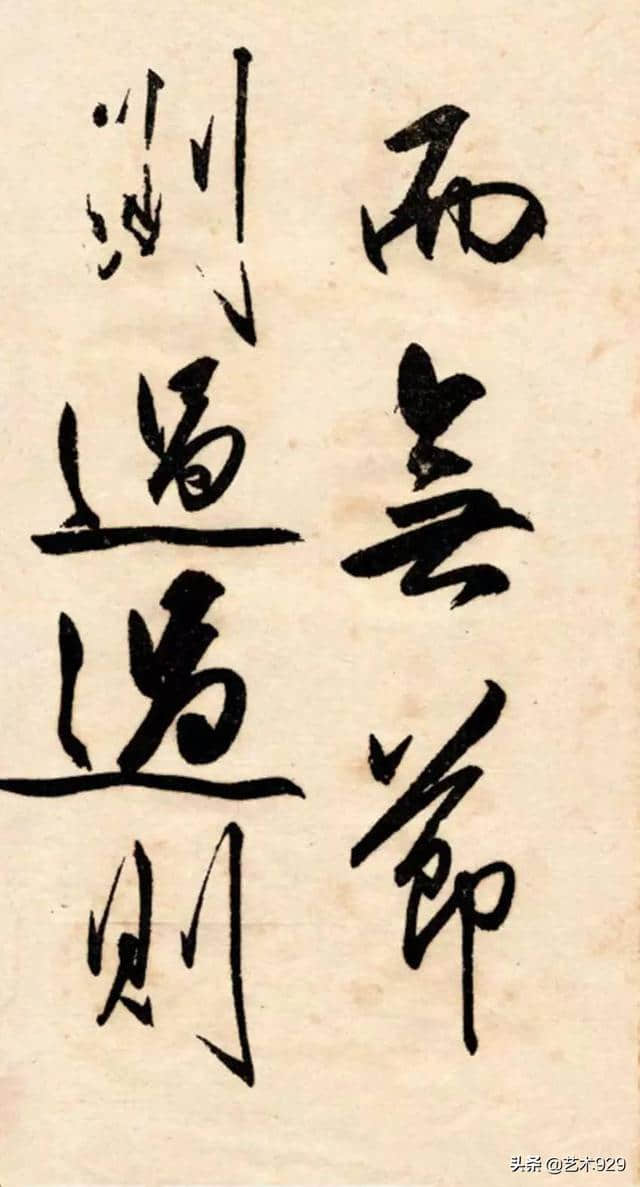 而無節
則過過則
头条 @艺术929